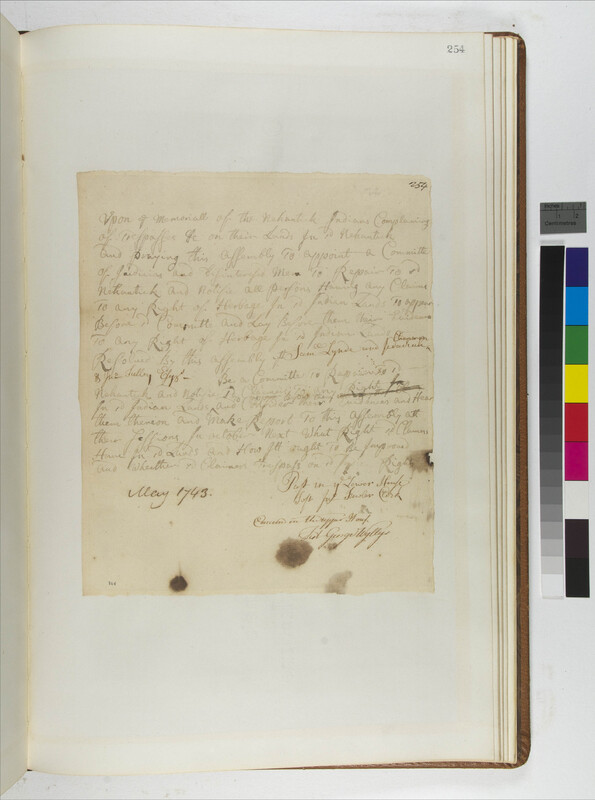 254
254
Upon ye memoriall of the Nehantick Indians Complaining
of Trespasses &c on their Lands In sd Nehantick
and Praying this Assembly To appoint a Committe
of Judicius and Disinterest Men To Repair To sd
Nehantick and Notifie all Persons Having any Claime
To any Right of Herbage In sd Indian Lands To appear
Before sd Committe and Lay Before them their
To any Right of Herbage In sd Indian Lands
Resolved by this Assembly yt Saml Lynde and
& Jno Tulley Esqrs Be a Committe to Repair To sd
Nehantick and Notifie
In sd Indian Lands and and Hear
them thereon and Make Report To this Assembly att
their Sessions In october Next What Right sd Claimers
Have In sd Lands and How itt ought To be Improved
and Whether sd Claimers Trespass on sd Right
May 1743.
Past in ye Lower House
Test Clerk
Concurd in the upper House
Test George Wyllys